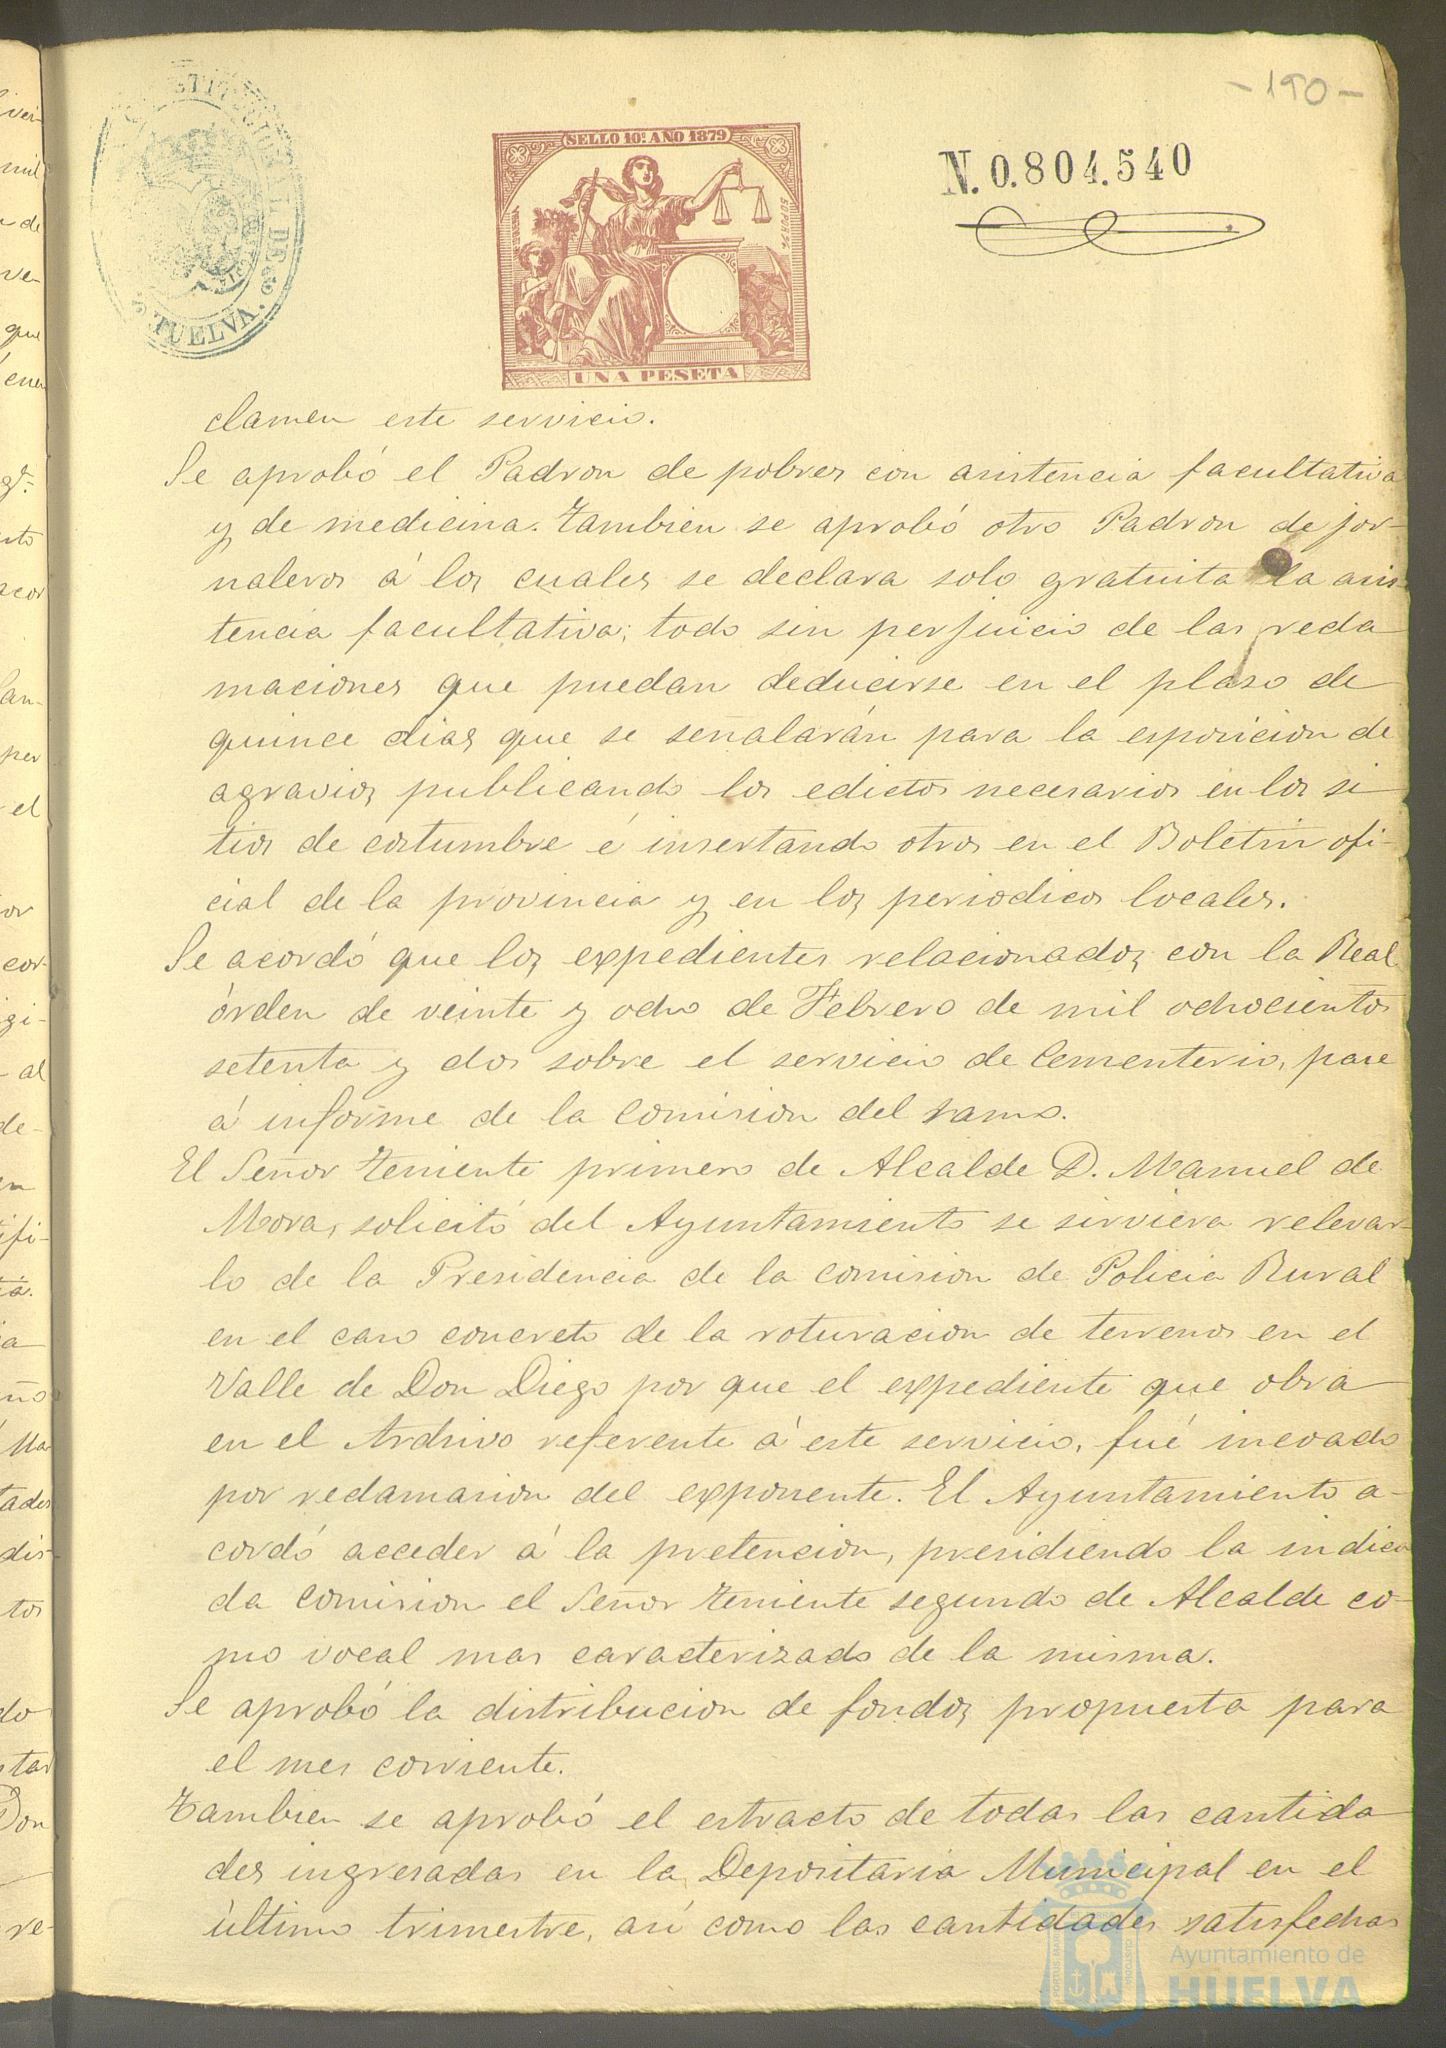 -190-
SELLO 10º AÑO 1879
N. 0.804.540
HUELVA.
UNA PESETA
clamen este servicio.
Se aprobó el Padron de pobres con asistencia facultativa
y de medicina. Tambien se aprobó otro Padron de jor-
naleros á los cuales se declara solo gratuita la asis-
tencia facultativa; todo sin perjuicio de las recla
maciones que puedan deducirse en el plaso de
quince dias que se señalarán para la esposicion de
agravios publicando los edictos necesarios en los si
tios de costumbre é insertando otros en el Boletin ofi-
cial de la provincia y en los periodicos locales.
Se acordó que los expedientes relacionados con la Real
órden de veinte y ocho de Febrero de mil ochocientos
setenta y dos sobre el servicio de Cementerio, pase
á informe de la Comision del ramo.
El Señor teniente primero de Alcalde D. Manuel de
Mora, solicitó del Ayuntamiento se sirviera relevar-
lo de la Presidencia de la Comision de Policia Rural
en el caso concreto de la roturacion de terrenos en el
Valle de Don Diego por que el expediente que obra
en el Archivo referente á este servicio, fué incoado
por reclamasion del exponente. El Ayuntamiento a-
cordó acceder á la pretencion, presidiendo la indica
da Comision el Señor teniente segundo de Alcalde co-
mo vocal mas caracterizado de la misma.
Se aprobó la distribucion de fondos propuesta para
el mes corriente.
Tambien se aprobó el estracto de todas las cantida
des ingresadas en la Depositaria Municipal en el
último trimestre, asi como las cantidades satisfechas
Ayuntamiento de
HUELVA